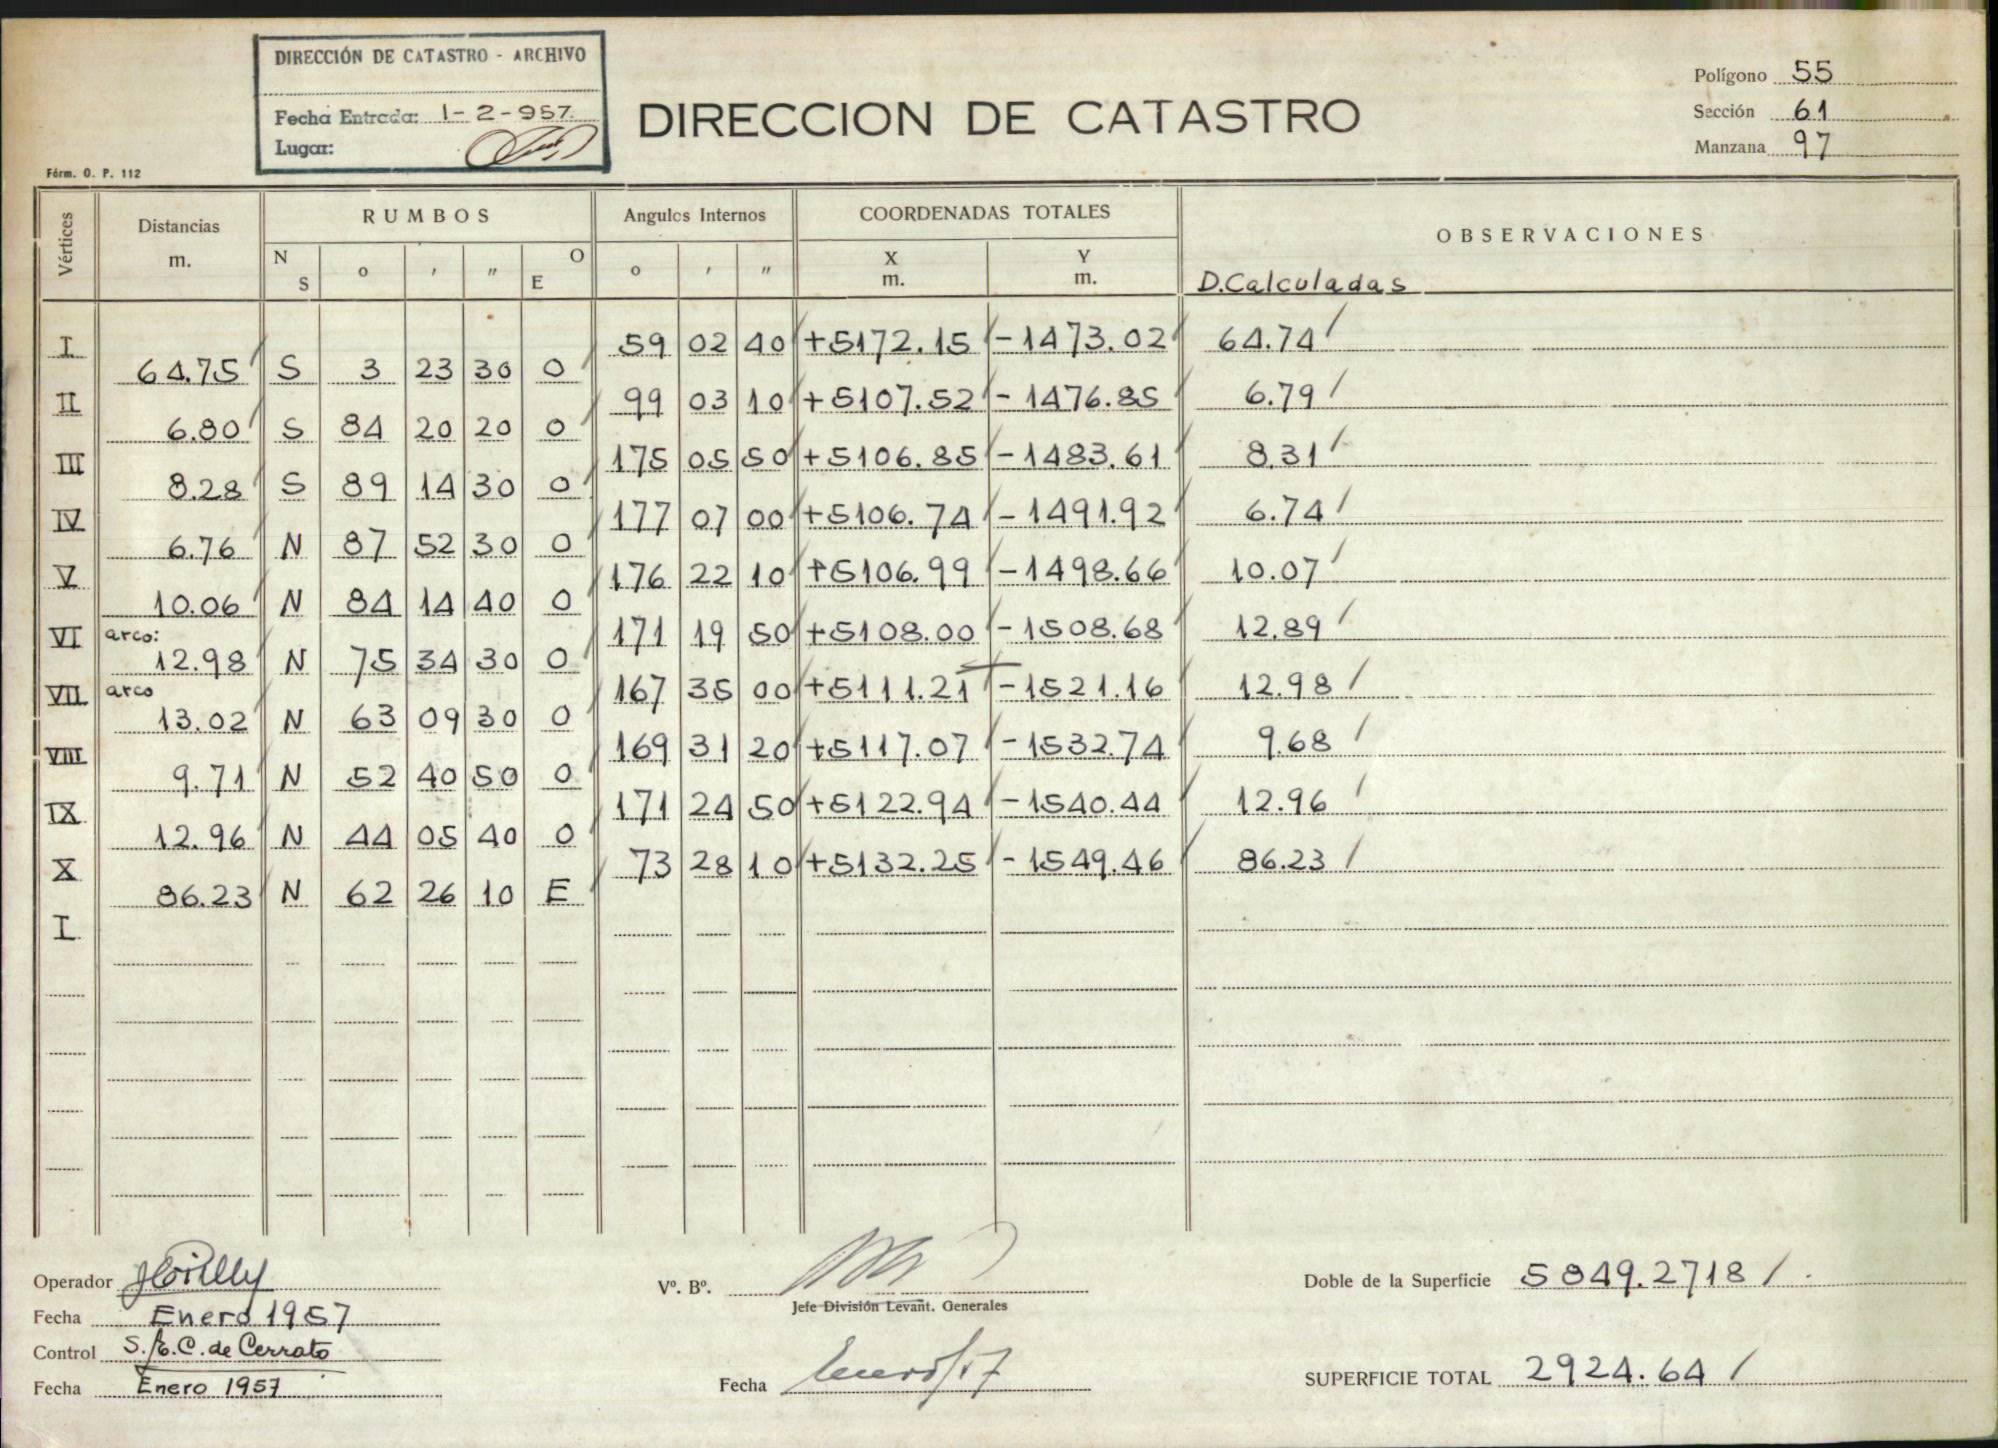 DIRECCIÓN DE CATASTRO - ARCHIVO
Fecha Entrada: 1-2-957.
Lugar:
DIRECCION DE CATASTRO
Polígono 55
Sección 61
Manzana 97
Fórm. O. P. 112
Vértices Distancias m. RUMBOS Angulos Internos COORDENADAS TOTALES OBSERVACIONES
N S o ' " O E o ' " X m. Y m. D.Calculadas
I 59 02 40 +5172.15 -1473.02 64.74
64.75 S 3 23 30 O
II 99 03 10 +5107.52 -1476.85 6.79
6.80 S 84 20 20 O
III 175 05 50 +5106.85 -1483.61 8.31
8.28 S 89 14 30 O
IV 177 07 00 +5106.74 -1491.92 6.74
6.76 N 87 52 30 O
V 176 22 10 +5106.99 -1498.66 10.07
10.06 N 84 14 40 O
VI 171 19 50 +5108.00 -1508.68 12.89
arco: 12.98 N 75 34 30 O
VII 167 35 00 +5111.21 -1521.16 12.98
arco 13.02 N 63 09 30 O
VIII 169 31 20 +5117.07 -1532.74 9.68
9.71 N 52 40 50 O
IX 171 24 50 +5122.94 -1540.44 12.96
12.96 N 44 05 40 O
X 73 28 10 +5132.25 -1549.46 86.23
86.23 N 62 26 10 E
I
Operador
Fecha Enero 1957
Control S. E. C. de Cerrato
Fecha Enero 1957
Vº. Bº.
Jefe División Levant. Generales
Fecha Enero/57
Doble de la Superficie 5849.2718
SUPERFICIE TOTAL 2924.64